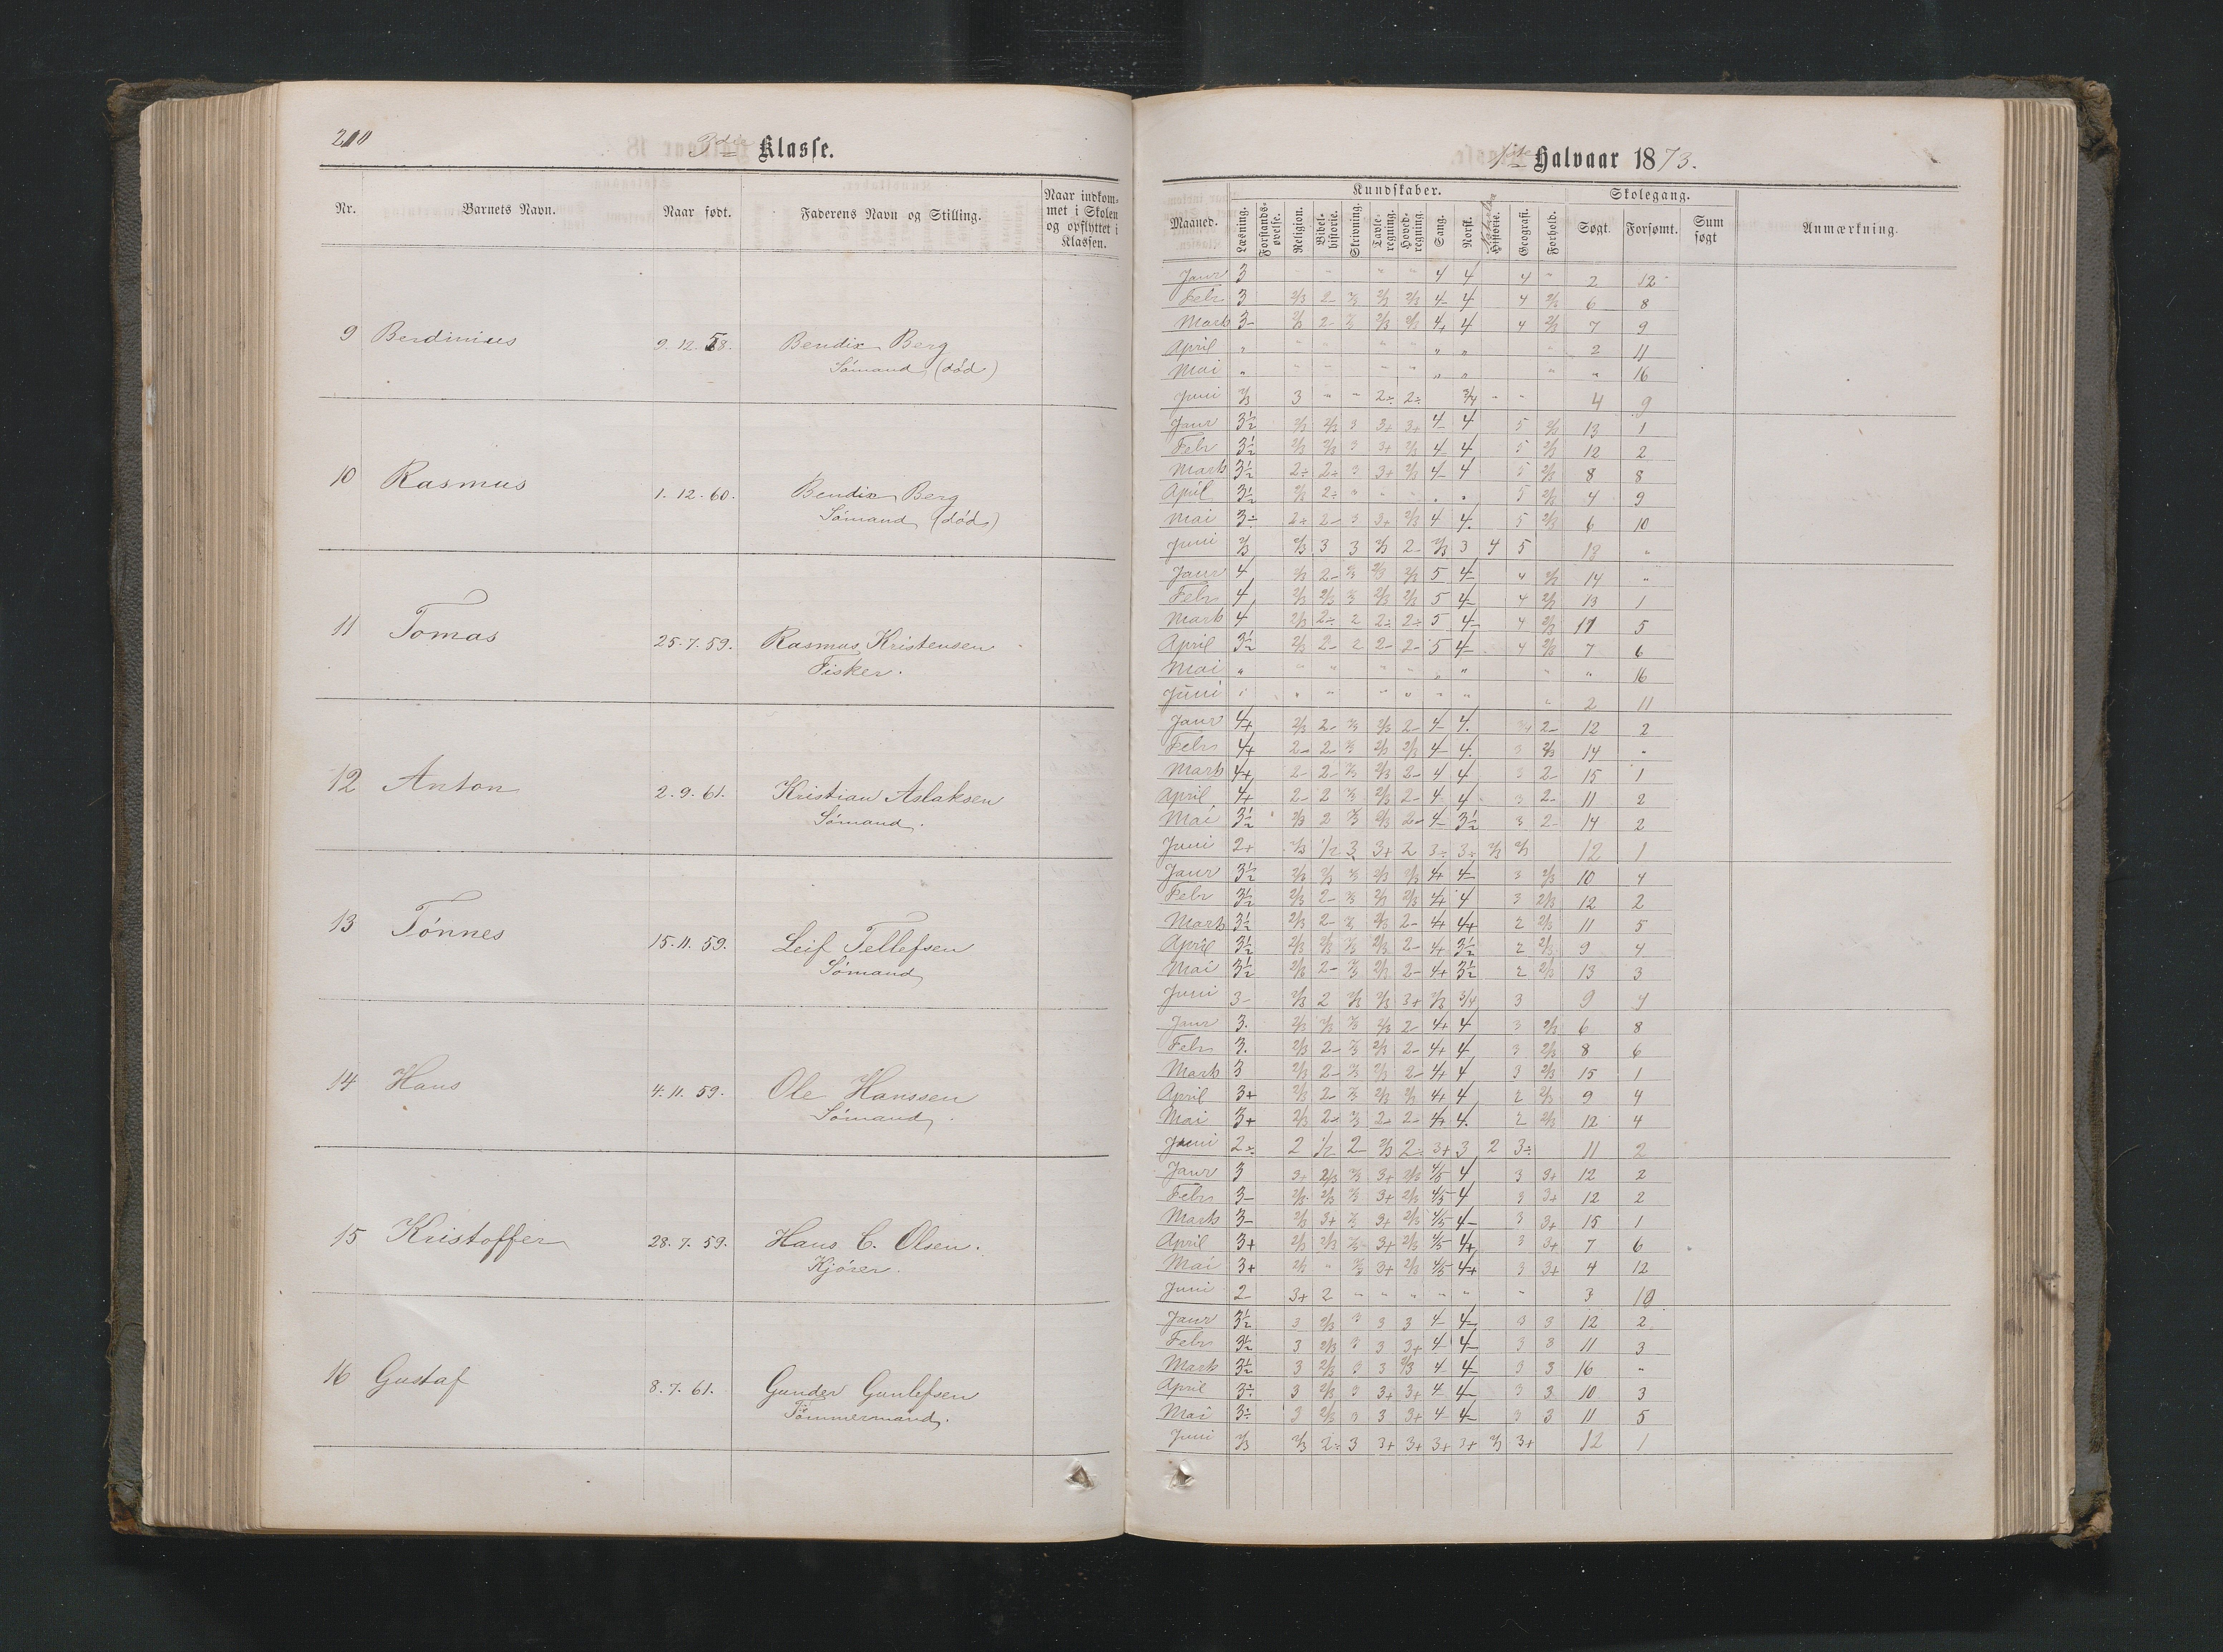 210
3die Klasse.
Nr.
Barnets Navn.
Naar født.
Faderens Navn og Stilling.
Naar indkom-
met i Skolen
og opflyttet i
Klassen.
9 Berdinius 9. 12. 58. Bendix Berg
Sömand (död)
10 Rasmus 1. 12. 60. Bendix Berg
Sömand (död)
11 Tomas 25. 7. 59. Rasmus Kristensen
Fisker.
12 Anton 2. 9. 61. Kristian Aslaksen
Sömand.
13 Tönnes 15. 11. 59. Leif Tellefsen
Sömand
14 Hans 4. 11. 59. Ole Hanssen
Sömand.
15 Kristoffer 28. 7. 59. Hans C. Olsen.
Kjörer.
16 Gustaf 8. 7. 61. Gunder Gunlefsen
Tömmermand.
1ste Halvaar 1873.
Maaned.
Kundskaber.
Skolegang.
Anmærkning.
Læsning.
Forstands-
øvelse.
Religion.
Bibel-
historie.
Skrivning.
Tavle-
regning.
Hoved-
regning.
Sang.
Norsk.
Historie.
Geografi.
Forhold.
Søgt.
Forsømt.
Sum
søgt
Janr 3 " " " 4 4 4 " 2 12
Febr 3 2/3 2- 2/3 2/3 2/3 4- 4 4 2/3 6 8
Marts 3- 2/3 2- 2/3 2/3 2/3 4+ 4 4 2/3 7 9
April " " " " " " " " 2 11
Mai " " " " " " " " " 16
Juni 2/3 3 " " 2÷ 2÷ 3/4 " " 4 9
Janr 3½ 2/3 2/3 3 3+ 3+ 4- 4 5 2/3 13 1
Febr 3½ 2/3 2/3 3 3+ 2/3 4 4 5 2/3 12 2
Marts 3½ 2÷ 2÷ 3 3+ 2/3 4- 4 5 2/3 8 8
April 3½ 2/3 2÷ " " " " " 5 2/3 4 9
Mai 3÷ 2÷ 2- 3 3+ 2/3 4 4. 5 2/3 6 10
Juni 2/3 2/3 3 3 2/3 2- 2/3 3 4 5 13 "
Janr 4 2/3 2- 2/3 2/3 2/3 5 4- 4 2/3 14 "
Febr 4 2/3 2/3 2/3 2/3 2/3 5 4- 4 2/3 13 1
Marts 4 2/3 2÷ 2 2÷ 2÷ 5 4- 4 2/3 11 5
April 3½ 2/3 2- 2 2- 2- 5 4- 4 2/3 7 6
Mai " " " " " " " " " 16
Juni " " " " " " " " 2 11
Janr 4+ 2/3 2- 2/3 2/3 2- 4- 4. 3+ 2- 12 2
Febr 4+ 2- 2- 2/3 2/3 2/3 4- 4. 3 2/3 14 "
Marts 4+ 2- 2- 2/3 2/3 2- 4 4 3 2- 15 1
April 4+ 2- 2 2/3 2/3 2- 4 4 3 2- 11 2
Mai 3½ 2/3 2 2/3 2/3 2- 4- 3½ 3 2- 14 2
Juni 2+ 2/3 1/2 3 3+ 2 3÷ 3÷ 2/3 2/3 12 1
Janr 3½ 2/3 2/3 2/3 2/3 2/3 4+ 4- 3 2/3 10 4
Febr 3½ 2/3 2- 2/3 2/3 2/3 4+ 4 3 2/3 12 2
Marts 3½ 2/3 2- 2/3 2/3 2- 4+ 4+ 2 2/3 11 5
April 3½ 2/3 2/3 2/3 2/3 2- 4+ 3½ 2 2/3 9 4
Mai 3½ 2/3 2- 2/3 2/3 2- 4+ 3½ 2 2/3 13 3
Juni 3- 2/3 2 2/3 2/3 3+ 2/3 3/4 3 9 4
Janr 3. 2/3 2/3 2/3 2/3 2- 4+ 4 3 2/3 6 8
Febr 3. 2/3 2- 2/3 2/3 2- 4+ 4 3 2/3 8 6
Marts 3 2/3 2- 2/3 2/3 2- 4+ 4 3 2/3 15 1
April 3+ 2/3 2- 2/3 2/3 2/3 4+ 4 2 2/3 9 4
Mai 3+ 2/3 2- 2/3 2- 2- 4+ 4. 2 2/3 12 4
Juni 2÷ 2 1/2 2- 2/3 2÷ 3+ 3 2 3÷ 11 2
Janr 3 3+ 2/3 2/3 3+ 2/3 4/5 4 3 3+ 12 2
Febr 3- 2/3 2/3 2/3 3+ 2/3 4/5 4 3 3+ 12 2
Marts 3- 2/3 3+ 2/3 3+ 2/3 4/5 4- 3 3+ 15 1
April 3+ 2/3 2/3 2/3 3+ 2/3 4/5 4+ 3 3+ 7 6
Mai 3+ 2/3 " 2/3 3+ 2/3 4/5 4+ 3 3+ 4 12
Juni 2- 3+ 2 " " " " " " 3 10
Janr 3½ 3 2/3 3 3 3 4 4- 3 3 12 2
Febr 3½ 3 2/3 3 3 3+ 4 4- 3 3 11 3
Marts 3½ 3 2/3 3 3 2/3 4 4- 3 3 16 "
April 3÷ 3 2/3 3 3+ 3+ 4 4- 3 3 10 3
Mai 3÷ 3 2/3 3 3 3+ 4 4- 3 3 11 5
Juni 2/3 2/3 2÷ 3 3+ 3+ 3+ 3+ 2/3 3+ 12 1